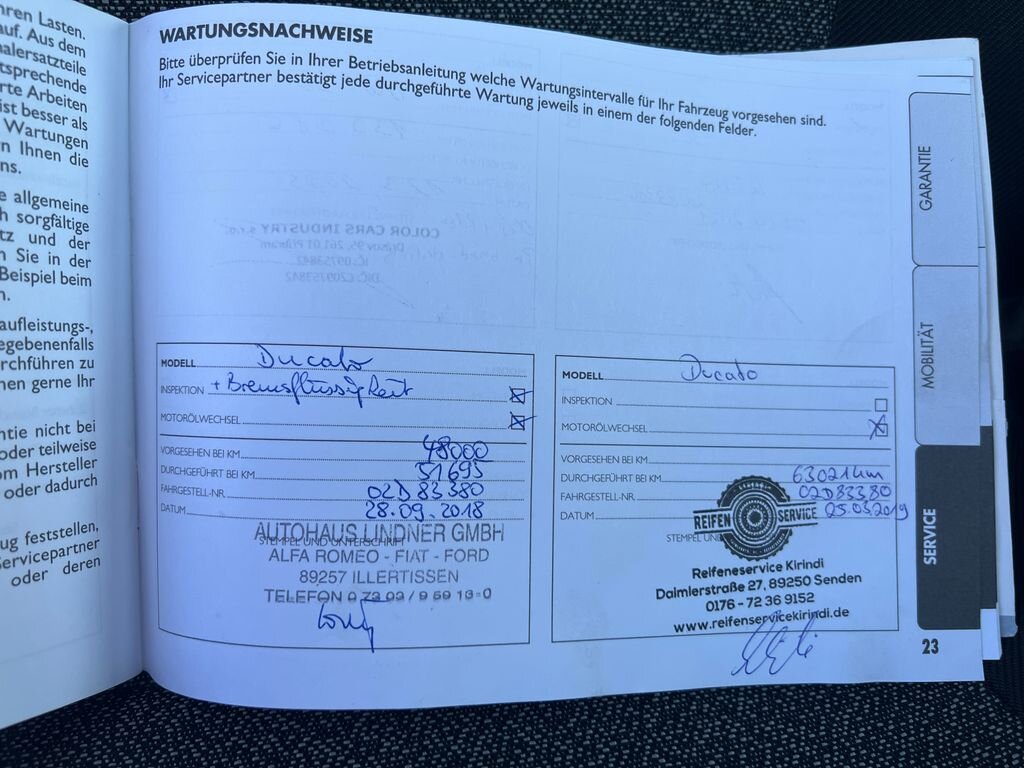 hren Lasten.
auf. Aus dem
nalersatzteile
ntsprechende
rte Arbeiten
ist besser als
Wartungen
n Ihnen die
ns.
e allgemeine
h sorgfältige
tz und der
n Sie in der
Beispiel beim
n.
aufleistungs-,
egebenenfalls
rchführen zu
nen gerne Ihr
ntie nicht bei
oder teilweise
om Hersteller
oder dadurch
ug feststellen,
Servicepartner
oder deren
WARTUNGSNACHWEISE
Bitte überprüfen Sie in Ihrer Betriebsanleitung welche Wartungsintervalle für Ihr Fahrzeug vorgesehen sind.
Ihr Servicepartner bestätigt jede durchgeführte Wartung jeweils in einem der folgenden Felder.
COLOR CARS INDUSTRY s.r.o.
MODELL Ducato
INSPEKTION + Bremsflüssigkeit
MOTORÖLWECHSEL
VORGESEHEN BEI KM 48000
DURCHGEFÜHRT BEI KM 51695
FAHRGESTELL-NR. 02D83380
DATUM 28.09.2018
STEMPEL UND UNTERSCHRIFT
AUTOHAUS LINDNER GMBH
ALFA ROMEO - FIAT - FORD
89257 ILLERTISSEN
TELEFON 0 73 03 / 9 69 13-0
MODELL Ducato
INSPEKTION
MOTORÖLWECHSEL
VORGESEHEN BEI KM
DURCHGEFÜHRT BEI KM 63021km
FAHRGESTELL-NR. 02D83380
DATUM 25.03.2019
STEMPEL UND
REIFEN SERVICE
Reifeneservice Kirindi
Daimlerstraße 27, 89250 Senden
0176 - 72 36 9152
www.reifenservicekirindi.de
GARANTIE
MOBILITÄT
SERVICE
23